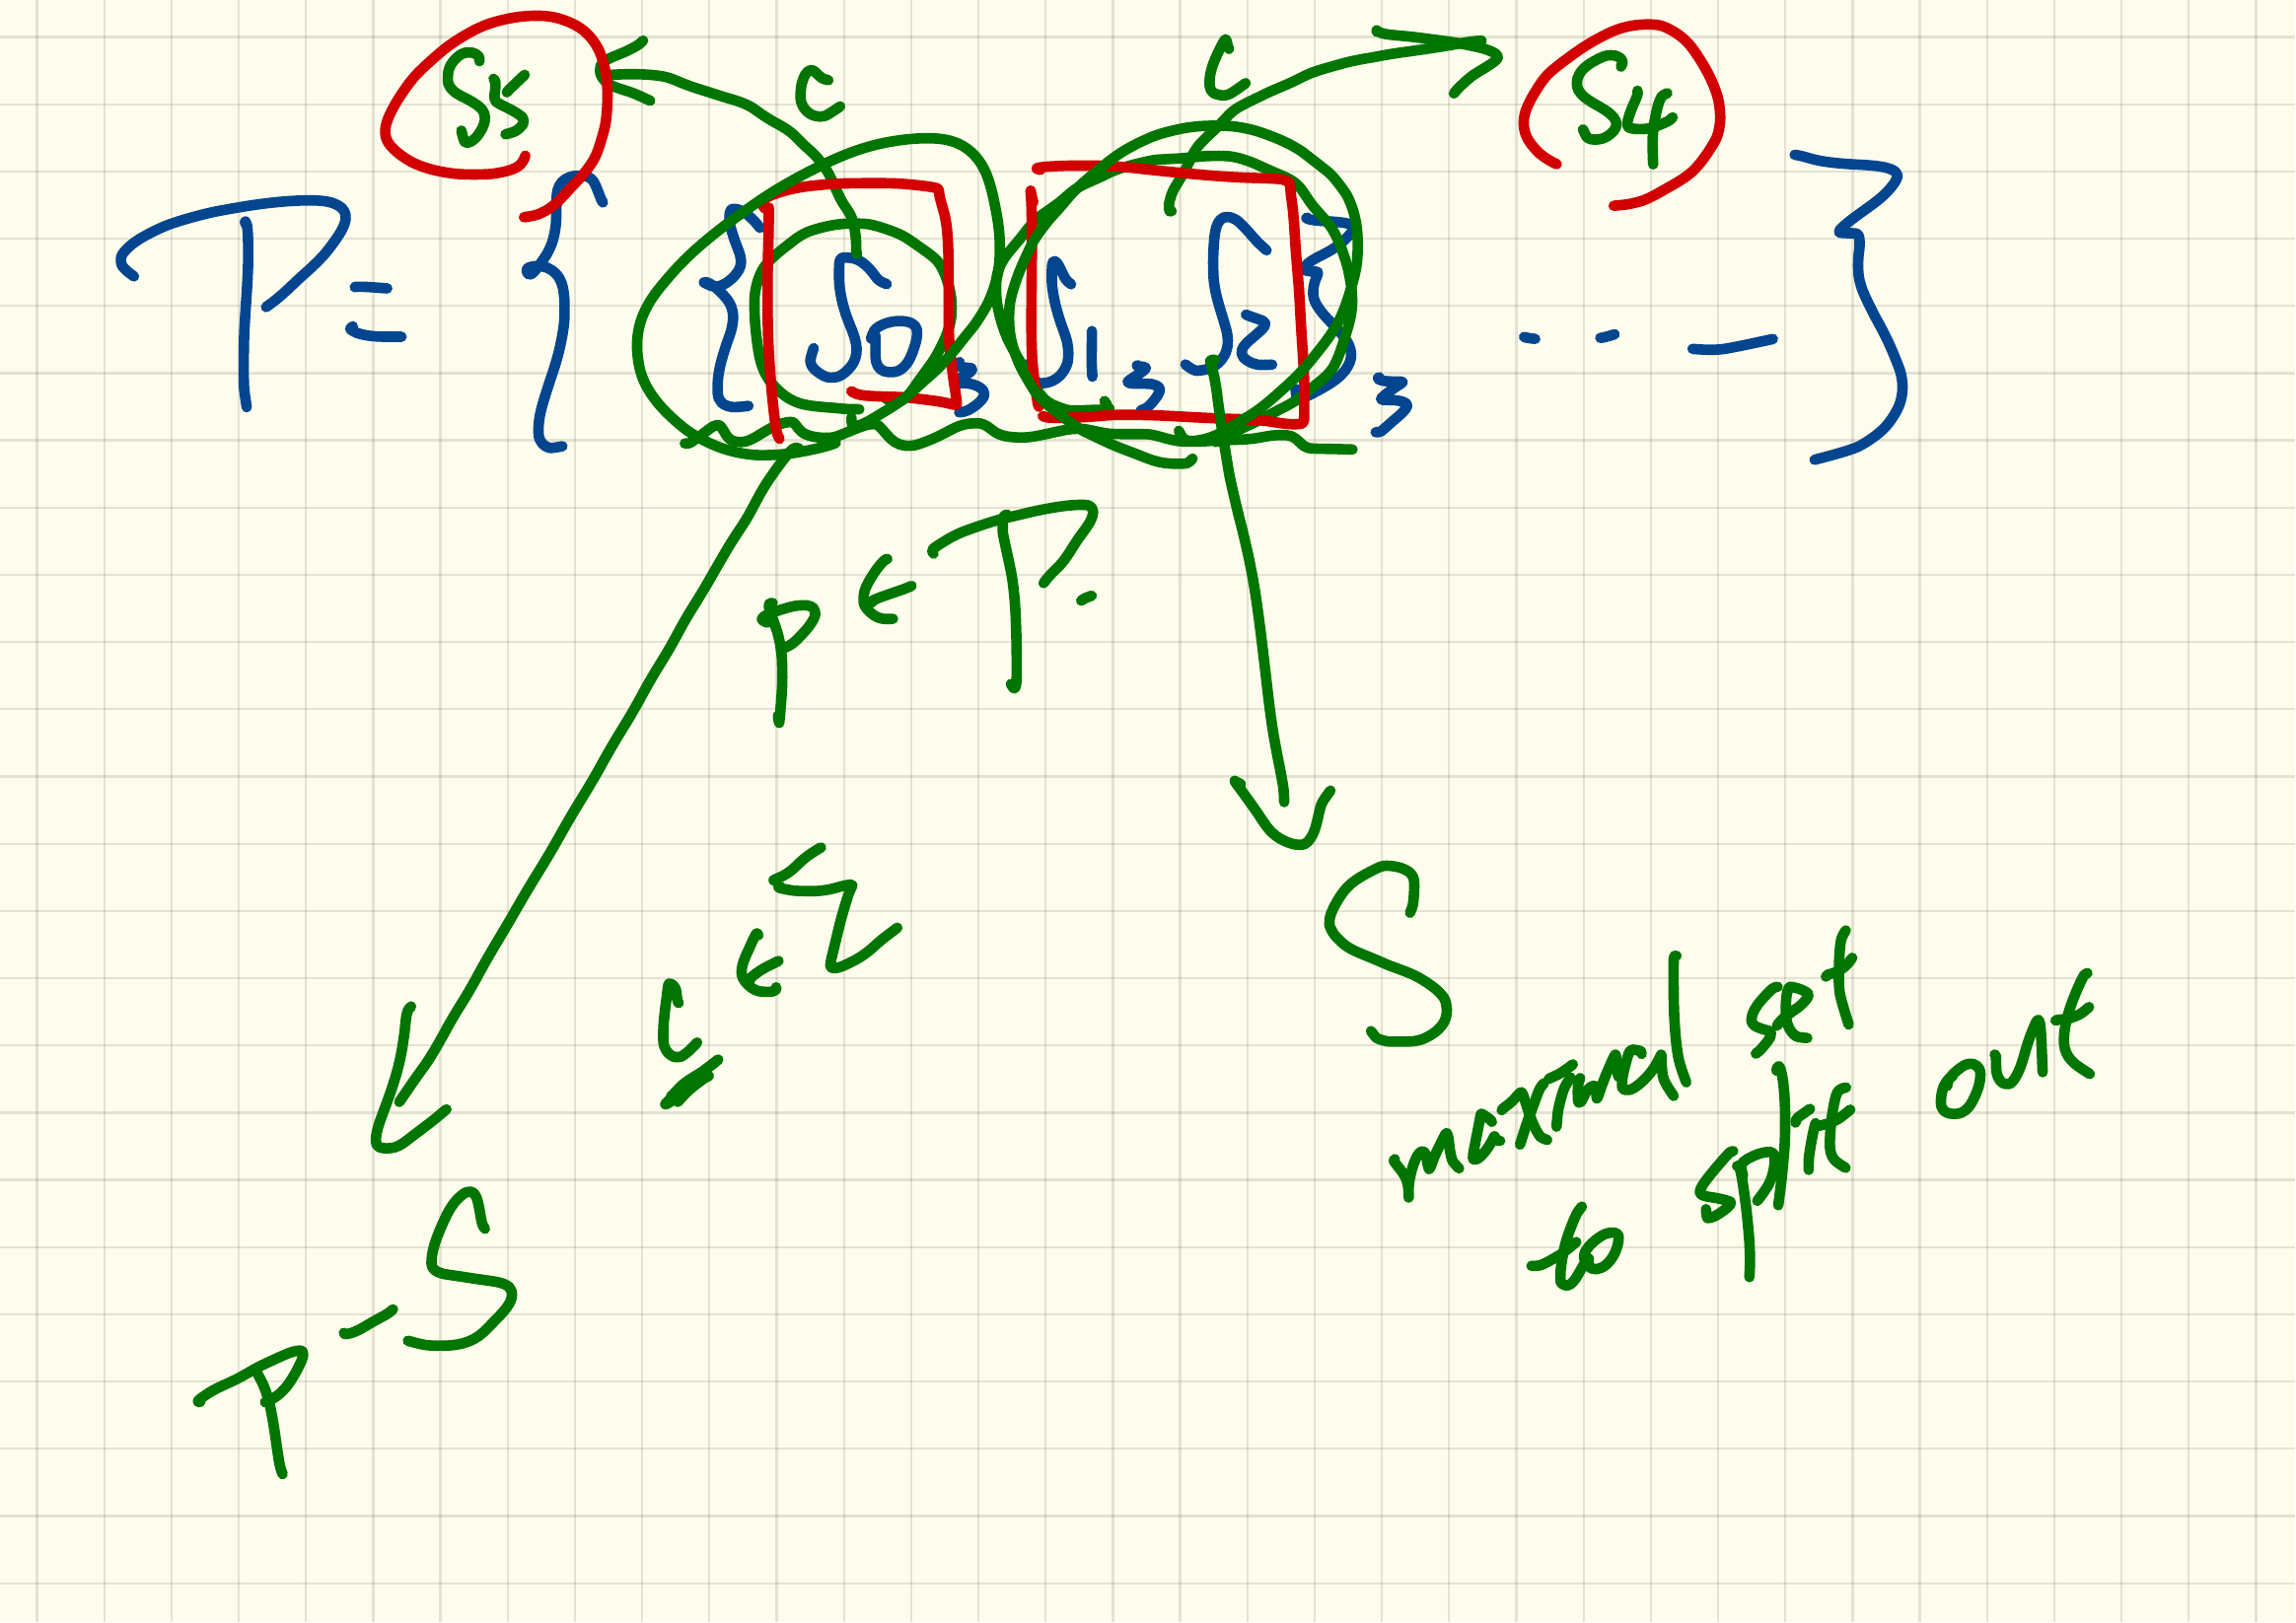 S5 c c S4
P = { { S0, S1, S2 }, . . — }
p ∈ P.
c ∈ Σ
S
maximal set
to split out
P - S